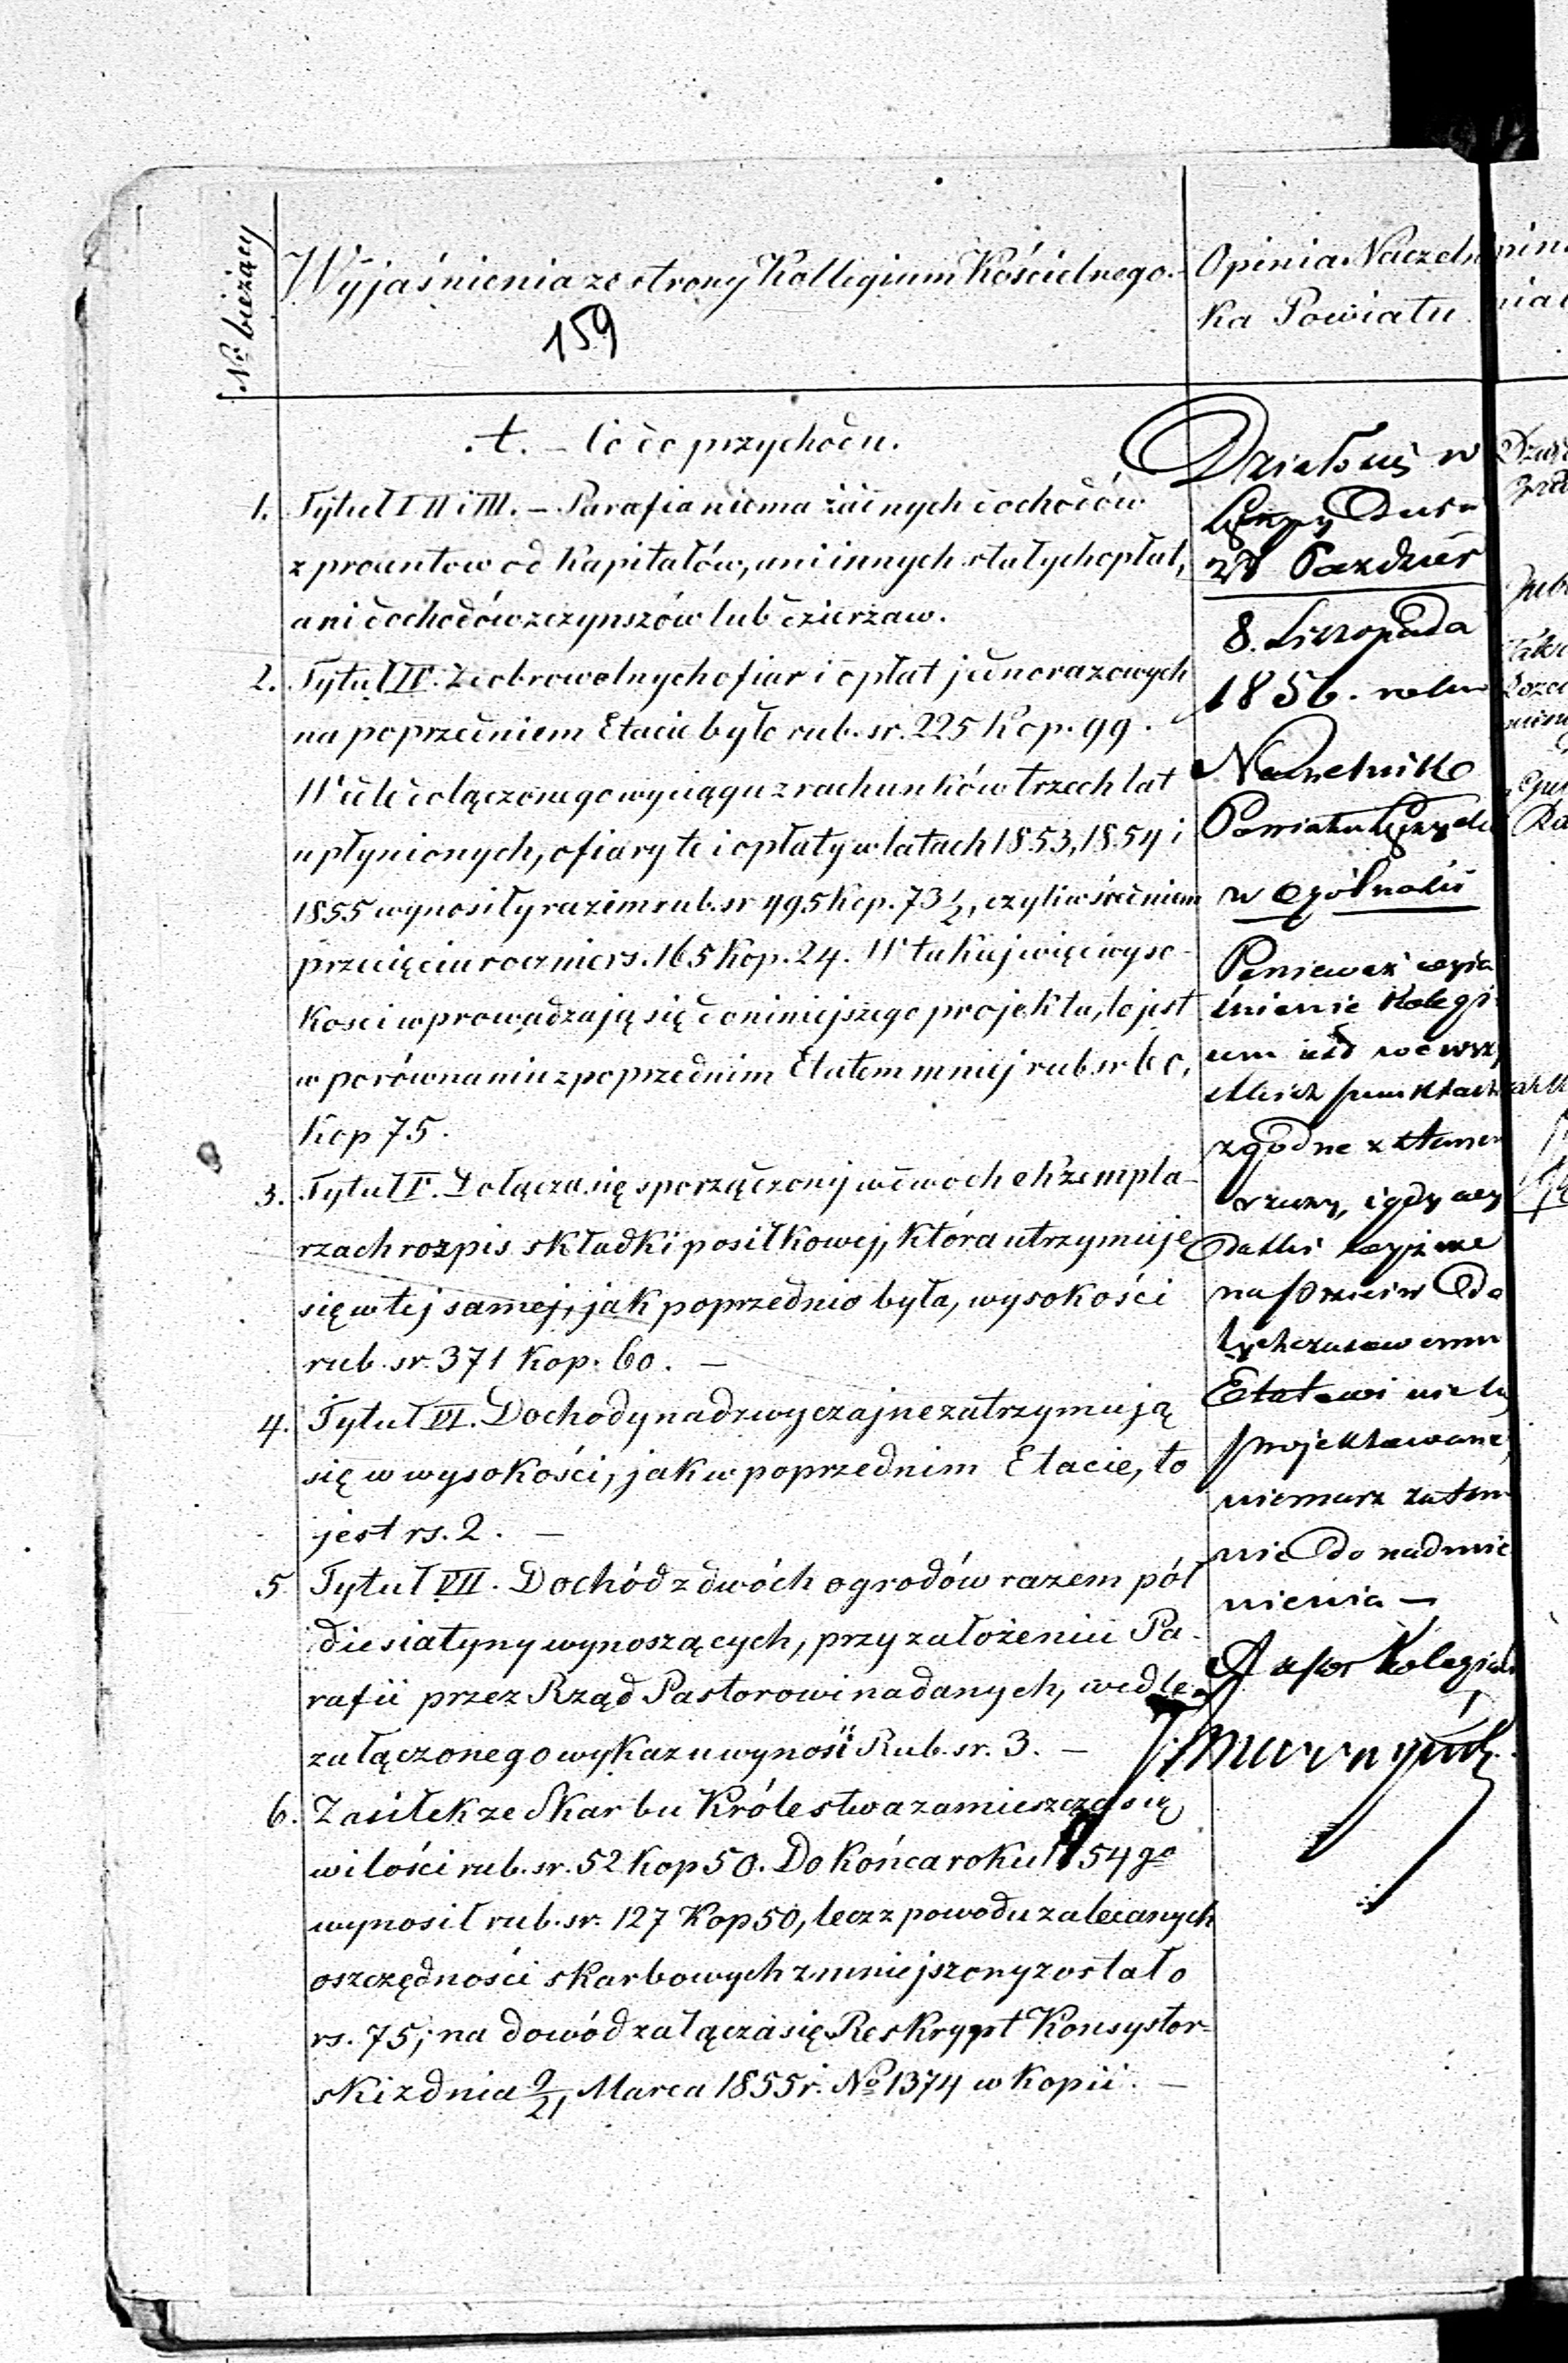 Nr bieżący
Wyjaśnienia ze strony Kollegium Kościelnego.
159
A. – Co do przychodu.
1. Tytuł I II i III. – Parafia niema żadnych dochodów
z procentow od Kapitałów, ani innych stałych opłat,
ani dochodów z czynszów lub dzierżaw.
2. Tytuł IV. Z dobrowolnych ofiar i opłat jednorazowych
na poprzedniem Etacie było rub. sr. 225 Kop. 99.
Wedle dołączonego wyciągu z rachunków trzech lat
upłynionych, ofiary te i opłaty w latach 1853, 1854 i
1855 wynosiły razem rub. sr 495 Kop. 73 1/2, czyli w średniem
przecięciu rocznie rs. 165 Kop. 24. W takiej więc wyso-
kosci wprowadzają się do niniejszego projektu, to jest
w porównaniu z poprzednim Etatem mniej rub. sr 60,
Kop 75.
3. Tytuł V. Dołącza się sporządzony w dwoch ekzempla-
rzach rozpis składki posiłkowej, która utrzymuje
się w tej samej, jak poprzednio była, wysokości
rub. sr. 371 Kop. 60. –
4. Tytuł VI. Dochody nadzwyczajne zatrzymują
się w wysokości, jak w poprzednim Etacie, to
jest rs. 2. –
5. Tytuł VII. Dochód z dwóch ogrodów razem pół
diesiatyny wynoszących, przy założeniu Pa-
rafii przez Rząd Pastorowi nadanych, wedle
załączonego wykazu wynosi Rub. sr. 3. –
6. Zasiłek ze Skarbu Królestwa zamieszcza się
w ilości rub. sr. 52 Kop 50. Do Końca roku 1854 go
wynosił rub. sr. 127 Kop 50, lecz z powodu zalecanych
oszczędności skarbowych zmniejszony został o
rs. 75; na dowód załącza się Reskrypt Konsystor-
ski z dnia 9/21 Marca 1855 r. No 1374 w Kopii. –
Opinia Naczelni
ka Powiatu
Działo się w
Dnia
Paździer
8. Listopada
1856. roku
Naczelnik
Powiatu
w ogólności
Ponieważ wyja
śnienie Kolegi
um jest we wszy
stkich punktach
zgodne z stanem
rzeczy, i gdy wy
datki wyższe
naprzeciw do
tychczasowemu
Etatowi nie są
projektowane,
niemasz zatem
nic do nadmie
nienia –
Assesor Kolegial